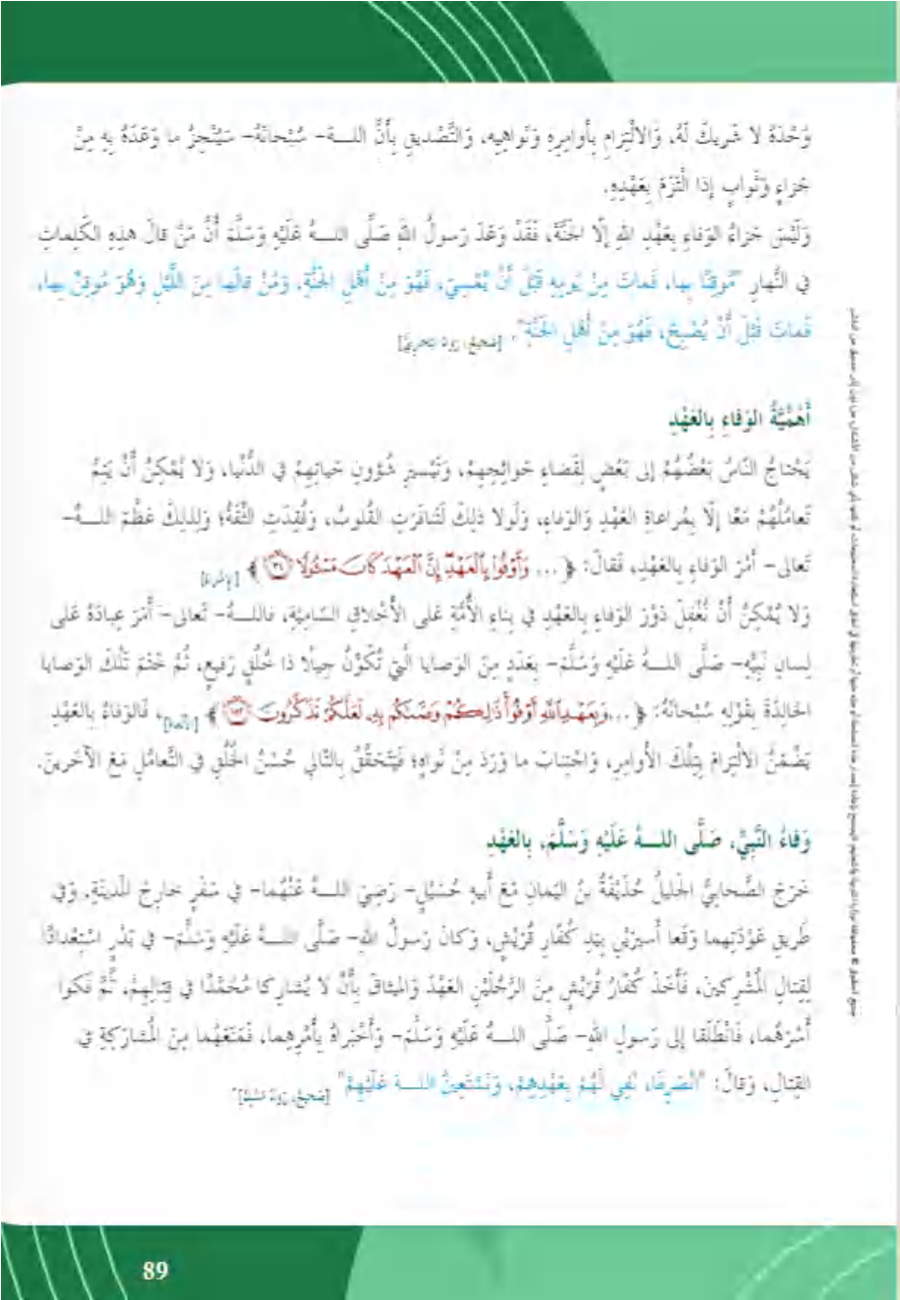 وَحْدَهُ لا شَريكَ لَهُ، وَالالْتِزامِ بِأَوامِرِهِ وَنَواهيهِ، وَالتَّصْديقِ بِأَنَّ اللــهَ- سُبْحانَهُ- سَيُنْجِزُ ما وَعَدَهُ بِهِ مِنْ
جَزاءٍ وَثَوابٍ إِذا الْتَزَمَ بِعَهْدِهِ.
وَلَيْسَ جَزاءُ الوَفاءِ بِعَهْدِ اللهِ إِلّا الجَنَّةَ، فَقَدْ وَعَدَ رَسولُ اللهِ صَلَّى اللــهُ عَلَيْهِ وَسَلَّمَ أَنَّ مَنْ قالَ هذِهِ الكَلِماتِ
في النَّهارِ "مُوقِنًا بِها، فَماتَ مِنْ يَومِهِ قَبْلَ أَنْ يُمْسِيَ، فَهُوَ مِنْ أَهْلِ الجَنَّةِ، وَمَنْ قالَها مِنَ اللَّيْلِ وَهُوَ مُوقِنٌ بِها،
فَماتَ قَبْلَ أَنْ يُصْبِحَ، فَهُوَ مِنْ أَهْلِ الجَنَّةِ". [صَحيحٌ، رَواهُ البُخارِيُّ]
أَهَمِّيَّةُ الوَفاءِ بِالعَهْدِ
يَحْتاجُ النّاسُ بَعْضُهُمْ إِلى بَعْضٍ لِقَضاءِ حَوائِجِهِمْ، وَتَيْسيرِ شُؤونِ حَياتِهِمْ في الدُّنْيا، وَلا يُمْكِنُ أَنْ يَتِمَّ
تَعامُلُهُمْ مَعًا إِلّا بِمُراعاةِ العَهْدِ وَالوَفاءِ، وَلَولا ذلِكَ لَتَنافَرَتِ القُلوبُ، وَفُقِدَتِ الثِّقَةُ؛ وَلِذلِكَ عَظَّمَ اللــهُ-
تَعالى- أَمْرَ الوَفاءِ بِالعَهْدِ، فَقالَ: ﴿ ... وَأَوْفُوا۟ بِٱلْعَهْدِ إِنَّ ٱلْعَهْدَ كَانَ مَسْـُٔولًا ٣٤ ﴾ [الإسراء]
وَلا يُمْكِنُ أَنْ نُغْفِلَ دَوْرَ الوَفاءِ بِالعَهْدِ في بِناءِ الأُمَّةِ عَلى الأَخْلاقِ السّامِيَةِ، فاللــهُ- تَعالى- أَمَرَ عِبادَهُ عَلى
لِسانِ نَبِيِّهِ- صَلَّى اللــهُ عَلَيْهِ وَسَلَّمَ- بِعَدَدٍ مِنَ الوَصايا الَّتي تُكَوِّنُ جيلًا ذا خُلُقٍ رَفيعٍ، ثُمَّ خَتَمَ تِلْكَ الوَصايا
الخالِدَةَ بِقَوْلِهِ سُبْحانَهُ: ﴿ ...وَبِعَهْدِ ٱللَّهِ أَوْفُوا۟ ذَٰلِكُمْ وَصَّىٰكُم بِهِۦ لَعَلَّكُمْ تَذَكَّرُونَ ١٥٢ ﴾ [الأنعام]، فَالوَفاءُ بِالعَهْدِ
يَضْمَنُ الالْتِزامَ بِتِلْكَ الأَوامِرِ، وَاجْتِنابَ ما وَرَدَ مِنْ نَواهٍ؛ فَيَتَحَقَّقُ بِالتّالي حُسْنُ الخُلُقِ في التَّعامُلِ مَعَ الآخَرينَ.
وَفاءُ النَّبِيِّ، صَلَّى اللــهُ عَلَيْهِ وَسَلَّمَ، بِالعَهْدِ
خَرَجَ الصَّحابِيُّ الجَليلُ حُذَيْفَةُ بنُ اليَمانِ مَعَ أَبيهِ حُسَيْلٍ- رَضِيَ اللــهُ عَنْهُما- في سَفَرٍ خارِجَ المَدينَةِ. وَفي
طَريقِ عَوْدَتِهِما وَقَعا أَسيرَيْنِ بِيَدِ كُفّارِ قُرَيْشٍ، وَكانَ رَسولُ اللهِ- صَلَّى اللــهُ عَلَيْهِ وَسَلَّمَ- في بَدْرٍ اسْتِعْدادًا
لِقِتالِ المُشْرِكينَ، فَأَخَذَ كُفّارُ قُرَيْشٍ مِنَ الرَّجُلَيْنِ العَهْدَ وَالميثاقَ بِأَنْ لا يُشارِكا مُحَمَّدًا في قِتالِهِمْ، ثُمَّ فَكوا
أَسْرَهُما، فَانْطَلَقا إِلى رَسولِ اللهِ- صَلَّى اللــهُ عَلَيْهِ وَسَلَّمَ- وَأَخْبَراهُ بِأَمْرِهِما، فَمَنَعَهُما مِنَ المُشارَكَةِ في
القِتالِ، وَقالَ: "انْصَرِفَا، نَفِي لَهُمْ بِعَهْدِهِمْ، وَنَسْتَعِينُ اللــهَ عَلَيْهِمْ" [صَحيحٌ، رَواهُ مُسْلِمٌ].
89